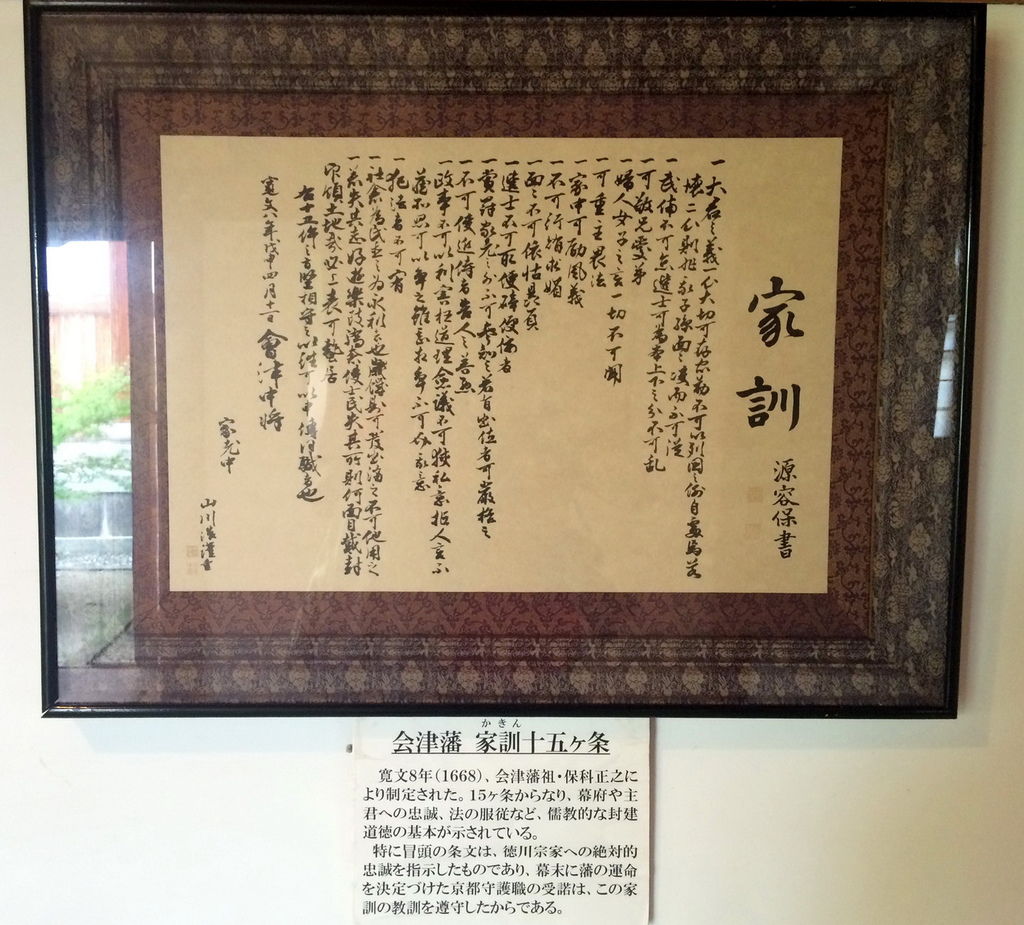 家訓
源容保書
一大君之義一心大切可存忠勤不可以列国之例自處焉若
懐二心則非我子孫面々決而不可従
一武備不可怠選士可為本上下之分不可乱
一可敬兄愛弟
一婦人女子之言一切不可聞
一可重主畏法
一家中可励風義
一不可行賄求媚
一面々不可依怙贔屓
一選士不可取便辟便佞者
一賞罰家老之外不可参知之若有出位者可厳格之
一不可使近侍者告人之善悪
一政事不可以利害枉道理僉議不可挟私意拒人言不
蔵所思可以争之雖甚相争不可介我意
一犯法者不可宥
一社倉為民置之為永利也歳饑則可発出済之不可他用之
一若失其志好遊楽致驕奢使士民失其所則何面目戴封
印領土地哉必上表可蟄居
右十五件之旨堅相守之以往可以申伝同職者也
寛文八年戊申四月十一日 會津中将
家老中
山川
会津藩 家訓十五ヶ条
かきん
寛文8年(1668)、会津藩祖・保科正之に
より制定された。15ヶ条からなり、幕府や主
君への忠誠、法の服従など、儒教的な封建
道徳の基本が示されている。
特に冒頭の条文は、徳川宗家への絶対的
忠誠を指示したものであり、幕末に藩の運命
を決定づけた京都守護職の受諾は、この家
訓の教訓を遵守したからである。